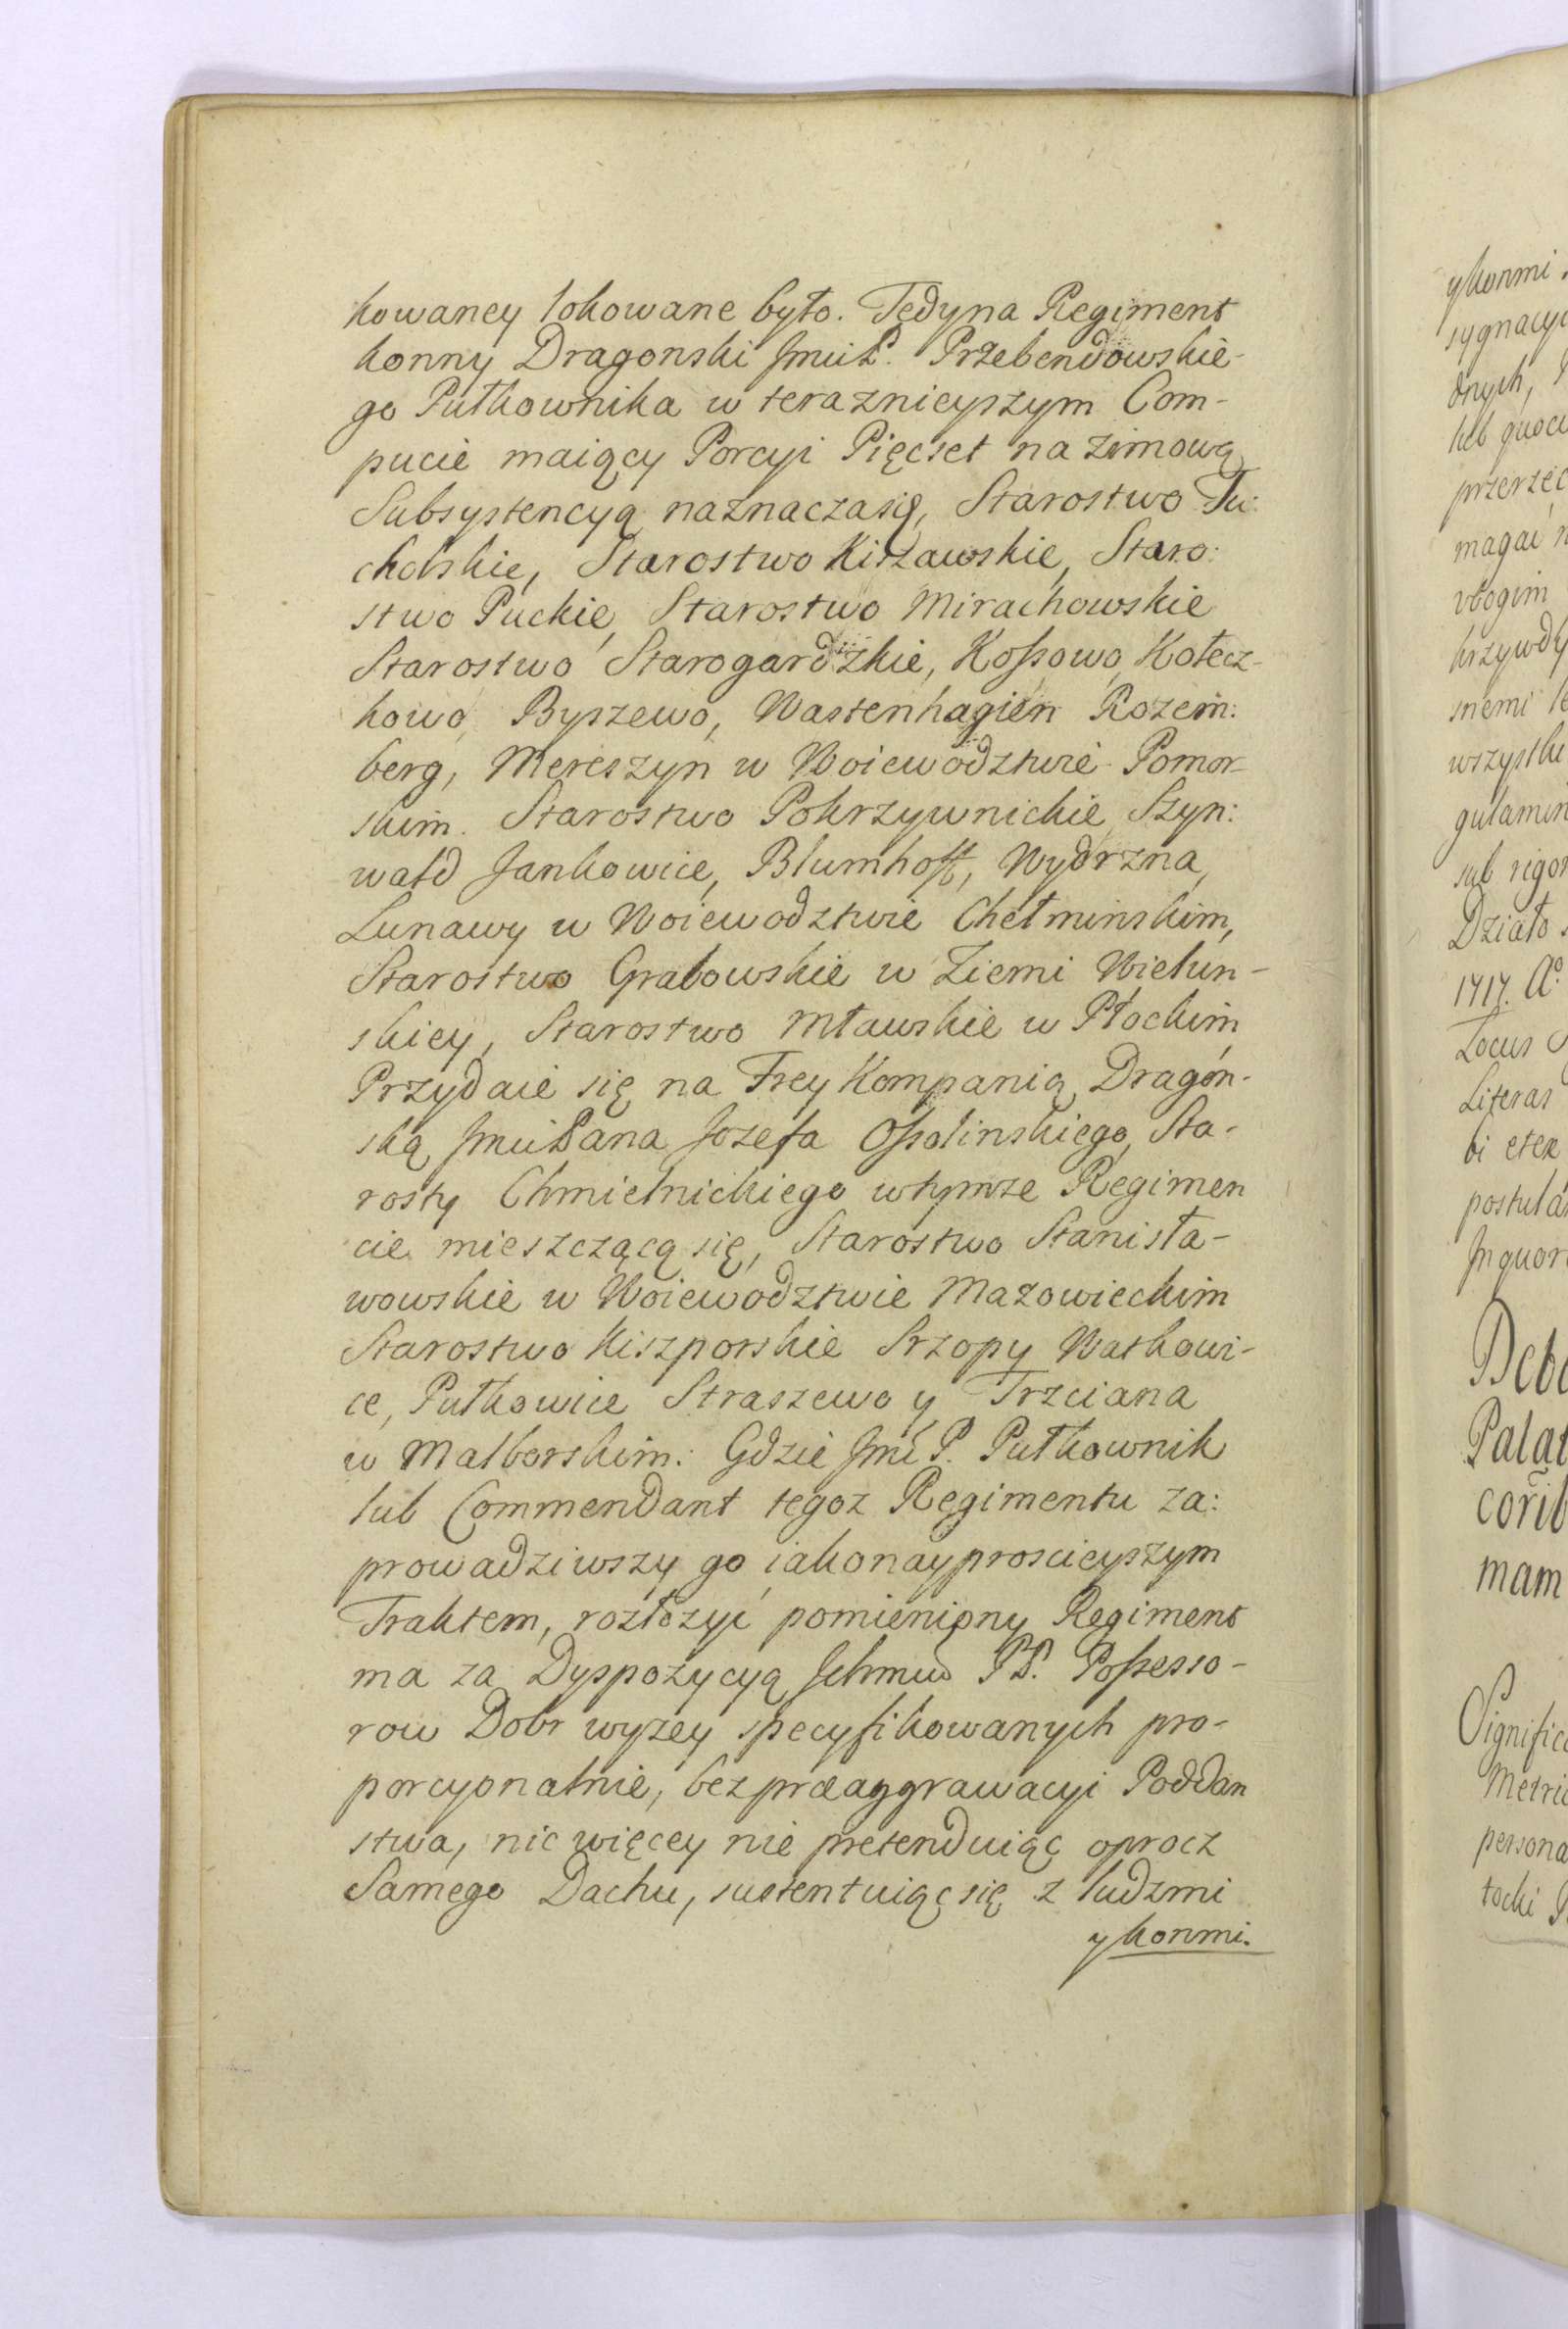 kowaney lokowane było. Tedyna Regiment
konny Dragonski Jmći P. Przebendowskie-
go Pułkownika w teraznieyszym Com-
pucie maiący Porcyi Pięcset na zimową
Subsystencyą naznaczasię, Starostwo Tu:
cholskie, Starostwo Kiszawskie, Staro:
stwo Puckie, Starostwo Mirachowskie
Starostwo Starogardzkie, Kossowo, Kołecz-
kowo, Byszewo, Wastenhagien Rozem:
berg, Mereszyn w Woiewodztwie Pomor-
skim. Starostwo Pokrzywnickie, Szyn:
wałd Jankowice, Blumhoff, Wydrzna,
Lunawy w Woiewodztwie Chełminskim,
Starostwo Grabowskie w Ziemi Wielun-
skiey, Starostwo Mławskie w Płockim,
Przydaie się na Frey Kompanią Dragon-
ską Jmći Pana Jozefa Ossolinskiego, Sta-
rosty Chmielnickiego wtymze Regimen
cie mieszczącą się, Starostwo Stanisła-
wowskie w Woiewodztwie Mazowieckim
Starostwo Kiszporskie Srzopy Watkowi-
ce, Pułkowice Straszewo y Trzciana
w Malborskim: Gdzie Jmć P. Pułkownik
lub Commendant tegoz Regimentu za:
prowadziwszy go iakonayproscieyszym
Traktem, rozłozyć pomieniony Regiment
ma za Dyspozycyą Ichmciów PP. Possesso-
row Dobr wyzey specyfikowanych pro-
porcyonalnie, bez præaggrawacyi Poddan
stwa, nic więcey nie pretenduiąc oprocz
Samego Dachu, sustentuiąc się z ludzmi
y konmi.
y konmi
sygnacyi
dnych,
przerzec
magać
vbogim
krzywdy
wszystki
gulamin
sub rigor
Działo
1717. Ao
Locus
Literas
bi etex
postula
Inquor
Palat
mam
Signific
Metric
persona
tocki P.